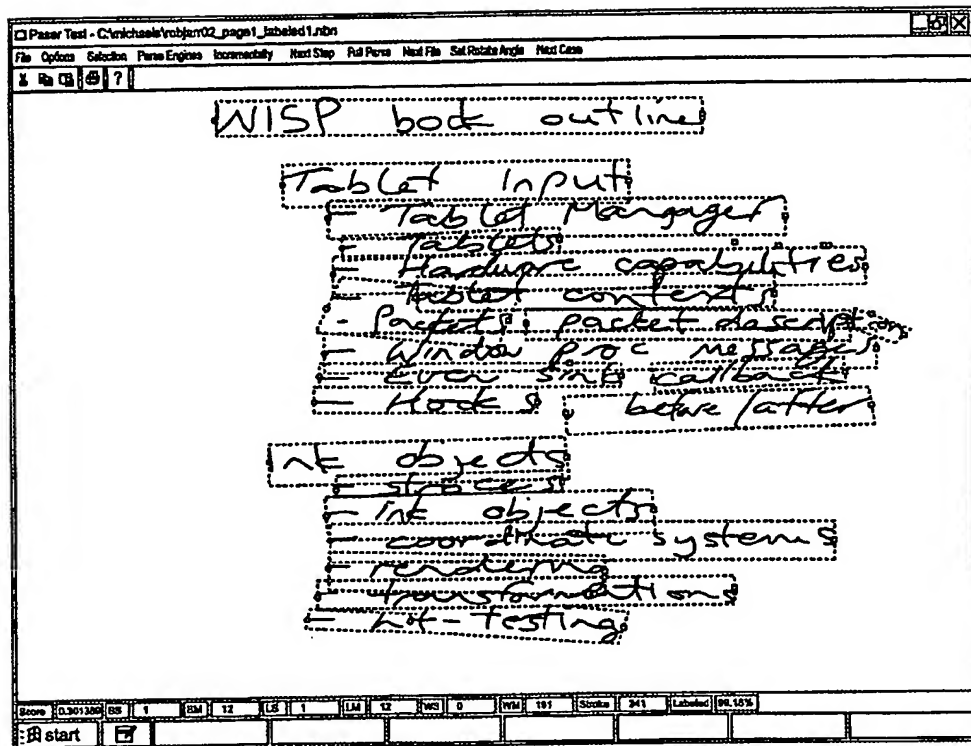 Paser Test - C:\michaels\robjarr02_page1_labeled1.nbn
File Options Selection Parse Engines Incrementally Next Step Full Parse Next File Set Rotate Angle Next Case
?
WISP book outline
Tablet Input
- Tablet Mangager
- Tablets
- Hardware capabilities
- Tablet contexts
- Packets, packet description
- Window proc messages
- Even sink callback
- Hooks before/after
Ink objects
- strokes
- ink objects
- coordinate systems
- rendering
- transformations
- hit-testing
Score 0.901389 BS 1 BM 12 LS 1 LM 12 WS 0 WM 191 Stroke 341 Labeled 98.18%
start